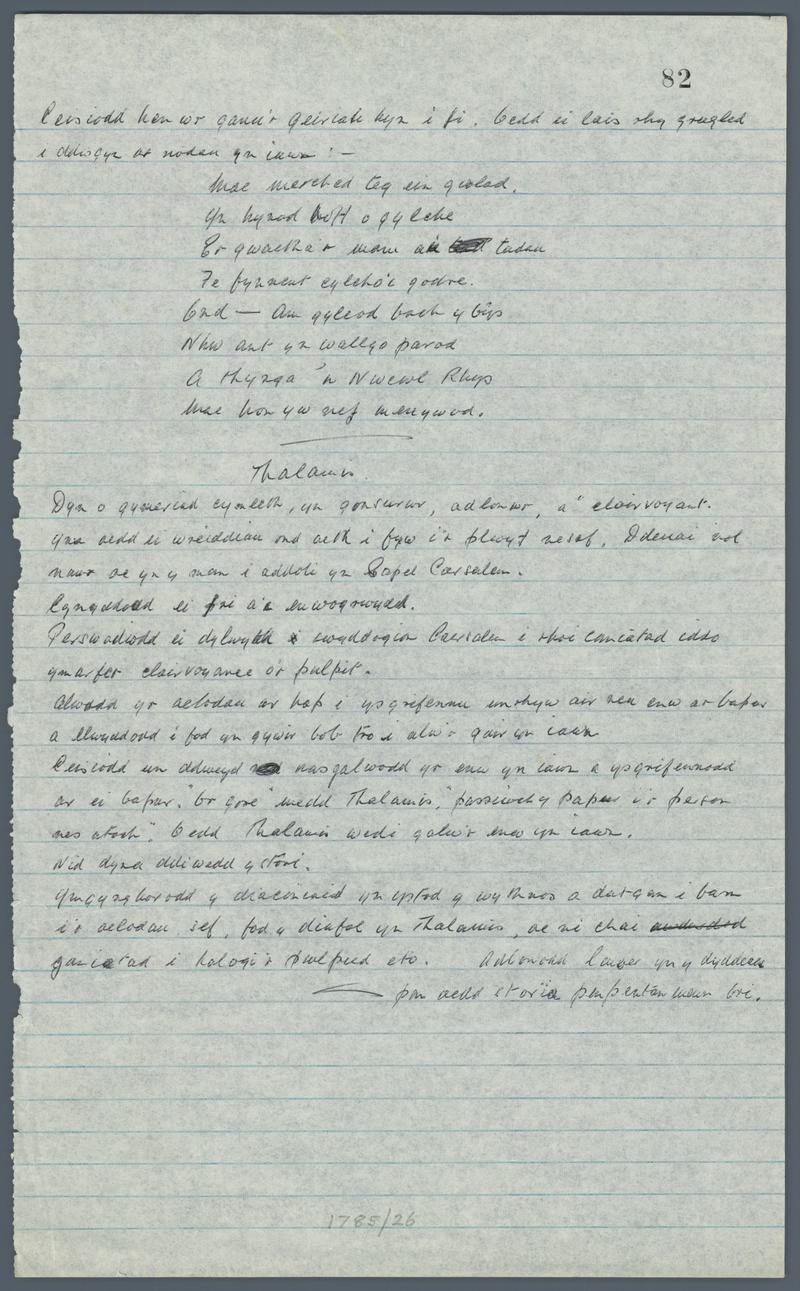 82
Ceisiodd hen wr ganu'r geiriau hyn i fi. Oedd ei lais rhy grugled
i ddisgyn ar nodau yn iawn :-
Mae merched teg ein gwlad,
Yn hynod hoff o gylche
Er gwaetha'r mam a'u tadau
Fe fynnent gylcho'i godre.
Ond — Am gylcod bach y bys
Nhw ant yn wallgo parod
A thynga 'n Nwewl Rhys
Mae hon yw nef menywod.
Thalamis.
Dyn o gymeriad cymleth, yn gonsuriwr, adlonwr, a' clairvoyant.
Yma oedd ei wreiddiau ond aeth i fyw i'r plwyf nesaf. Ddeuai nol
nawr ac yn y man i addoli yn Capel Caersalem.
Cynyddodd ei fri a'i enwogrwydd.
Perswadiodd ei dylwyth swyddogion Caersalem i rhoi caniatad iddo
ymarfer clairvoyance o'r pulpit.
Alwodd yr aelodau ar hap i ysgrifennu unrhyw air neu enw ar bapur
a llwyddodd i fod yn gywir bob tro i alw'r gair yn iawn
Ceisiodd un ddweyd nasgalwodd yr enw yn iawn a ysgrifennodd
ar ei bapur. "Or gore" medd Thalamis, "passiwch y papur i'r person
nes atoch". Oedd Thalamis wedi galw'r enw yn iawn.
Nid dyna ddiwedd y stori.
Ymgynghorodd y diaconiaid yn ystod y wythnos a datgan i barn
i'r aelodau sef, fod y diafol yn Thalamis, ac ni chai
ganiatad i halogi'r pwlpud eto. Adlonodd lawer yn y dyddiau
pan oedd storïa penpentan mewn bri.
1785/26